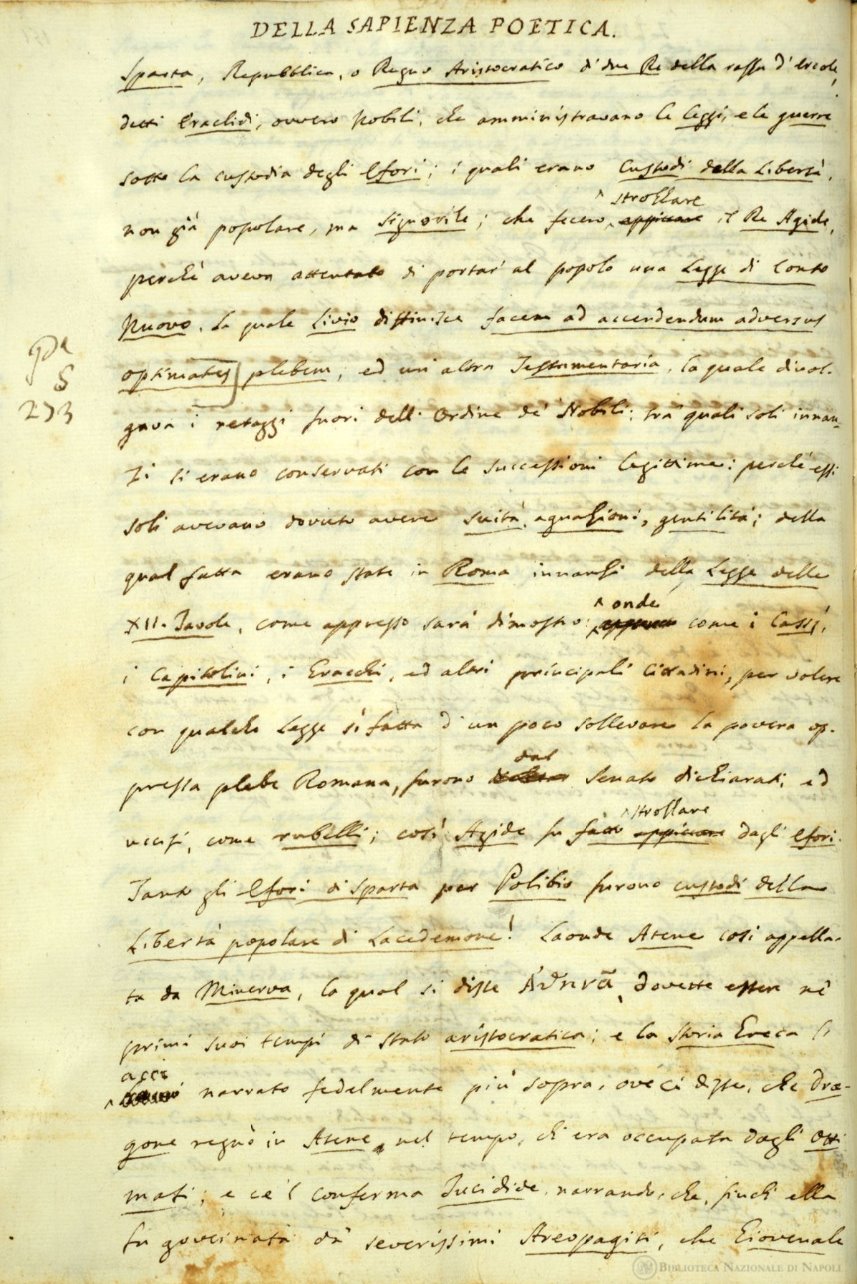 DELLA SAPIENZA POETICA.
Sparta, Repubblica, o Regno Aristocratico di due Re della razza d'Ercole,
detti Eraclidi, ovvero Nobili, che amministravano le leggi, e le guerre
sotto la custodia degli Efori; i quali erano Custodi della Libertà,
strozzare
non già popolare, ma Signorile; che fecero appiccare il Re Agide,
perchè aveva attentato di portar' al popolo una Legge di Conto
Nuovo, la quale Livio diffinisce facem ad accendendum adversus
optimates plebem; ed un'altra Testamentaria, la quale divol-
Pa
S
273
gava i retaggi fuori dell'Ordine de' Nobili; tra' quali soli innan-
zi si erano conservati con le successioni legittime; perchè essi
soli avevano dovuto avere suità, agnazioni, gentilità; della
qual fatta erano state in Roma innanzi della Legge delle
XII. Tavole, come appresso sarà dimostro:
onde
come i Cassj,
i Capitolini, i Gracchi, ed altri principali Cittadini, per volere
con qualche Legge sì fatta d'un poco sollevare la povera op-
dal
pressa plebe Romana, furono Senato dichiarati, ed
uccisi, come rubelli; così Agide fu fatto
strozzare
appiccare dagli Efori.
Tanto gli Efori di Sparta per Polibio furono custodi della
Libertà popolare di Lacedemone! Laonde Atene così appella-
ta da Minerva, la qual si disse Ἀθηνᾶ, dovette essere ne'
primi suoi tempi di Stato aristocratica; e la Storia Greca l'
acci
narrato fedelmente più sopra, ove ci disse, che Dra-
gone regnò in Atene nel tempo, ch'era occupata dagli Otti-
mati; e ce'l conferma Tucidide, narrando, che, finch'ella
fu governata da' severissimi Areopagiti, che Giovenale
BIBLIOTECA NAZIONALE DI NAPOLI